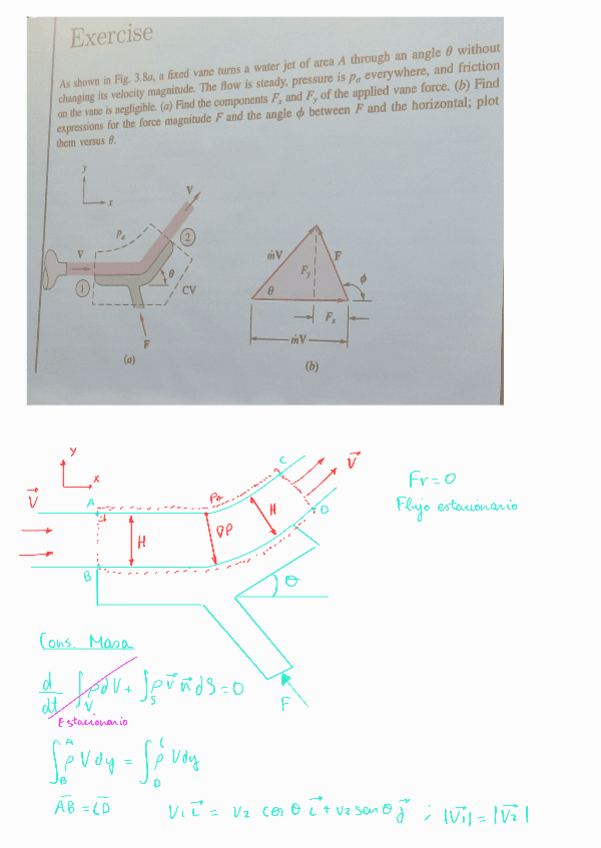 Exercise
As shown in Fig. 3.8a, a fixed vane turns a water jet of area A through an angle θ without
changing its velocity magnitude. The flow is steady, pressure is pₐ everywhere, and friction
on the vane is negligible. (a) Find the components Fₓ and Fᵧ of the applied vane force. (b) Find
expressions for the force magnitude F and the angle ϕ between F and the horizontal; plot
them versus θ.
y
x
V
pₐ
V
2
1
θ
CV
F
(a)
ṁV
F
Fᵧ
θ
ϕ
Fₓ
ṁV
(b)
Y
X
V⃗
A
Pa
C
V⃗
H
∇P
H
D
B
θ
F
Fr=0
Flujo estacionario
Cons. Masa
d/dt ∫_V ρdV + ∫_S ρ v⃗ n⃗ dS = 0
Estacionario
∫_B^A ρ V dy = ∫_D^C ρ V dy
A̅B̅ = C̅D̅
V₁ i⃗ = V₂ cos θ i⃗ + V₂ sen θ j⃗ ; |V⃗₁| = |V⃗₂|